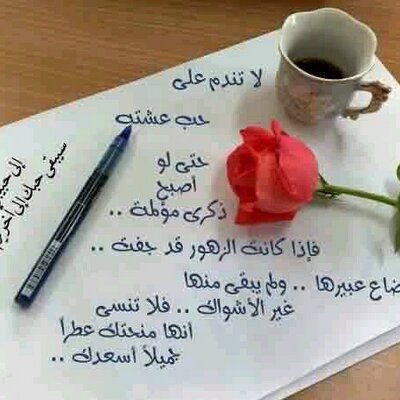 لا تندم على
حب عشته
حتى لو
أصبح
ذكرى مؤلمة ..
فإذا كانت الزهور قد جفت
ضاع عبيرها .. ولم يبقى منها
غير الأشواك .. فلا تنسى
أنها منحتك عطراً
جميلاً أسعدك ..
إلى
سيبقى حبك إلى